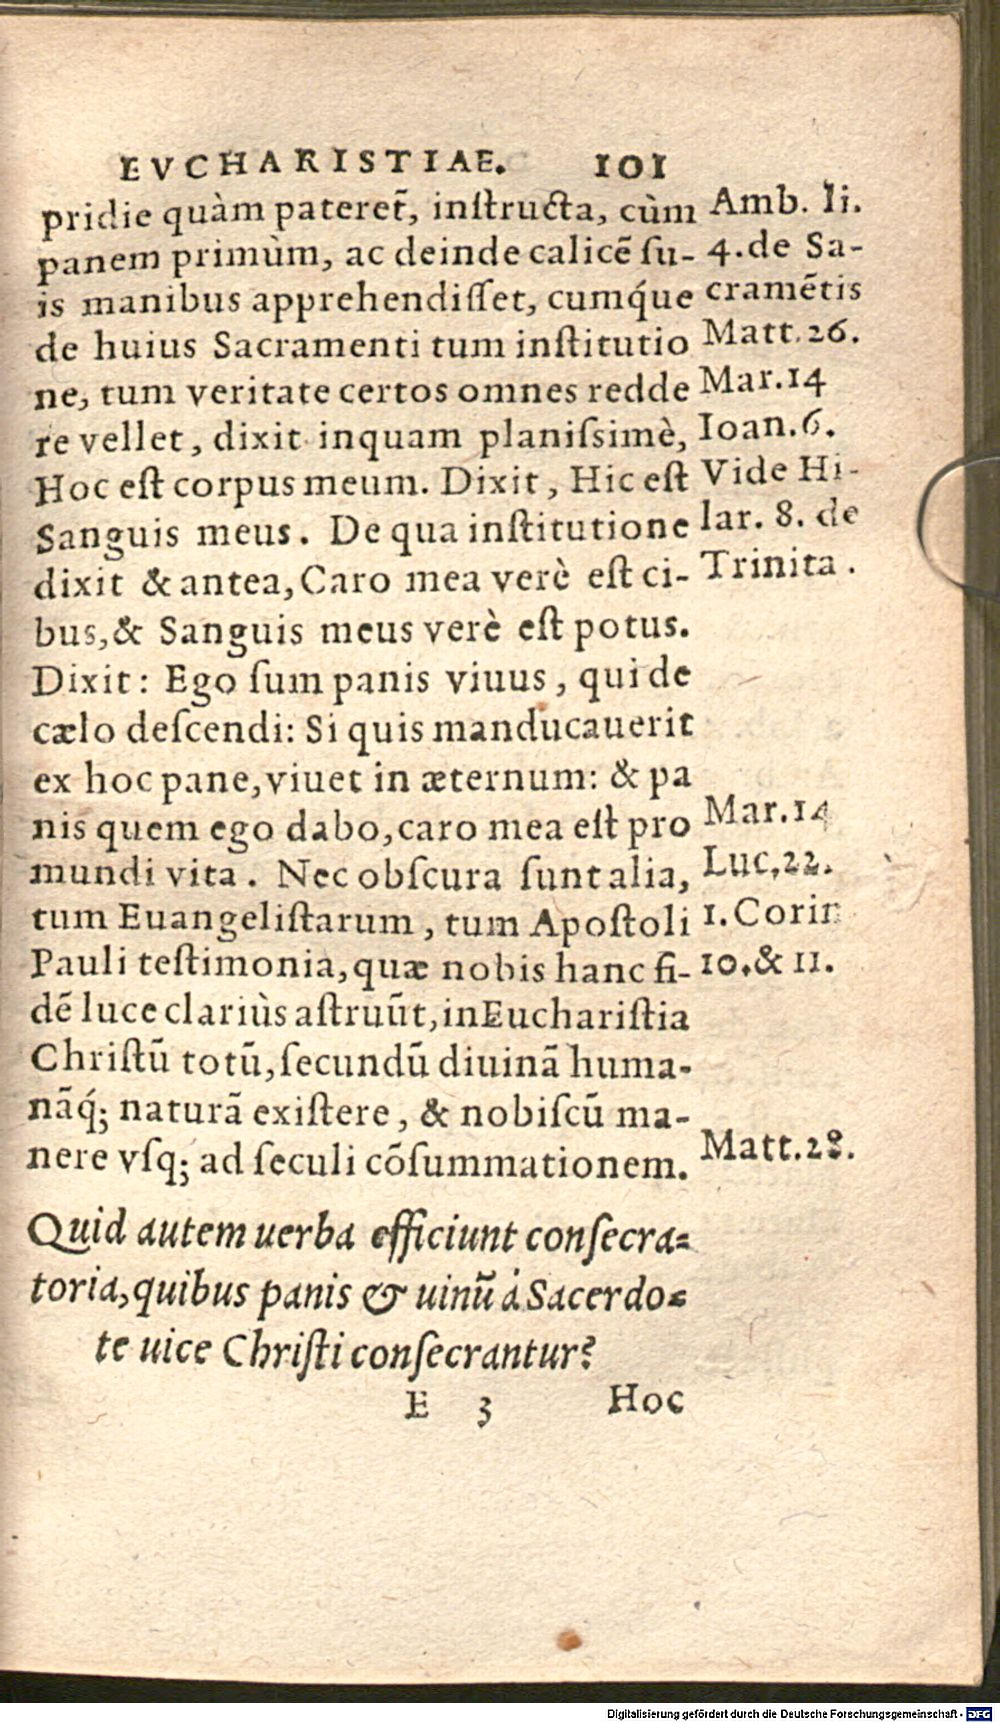 EVCHARISTIAE. 101
pridie quàm pateret̃, instructa, cùm
panem primùm, ac deinde calicẽ su-
is manibus apprehendisset, cumq́ue
de huius Sacramenti tum institutio
ne, tum veritate certos omnes redde
re vellet, dixit inquam planissimè,
Hoc est corpus meum. Dixit, Hic est
Sanguis meus. De qua institutione
dixit & antea, Caro mea verè est ci-
bus, & Sanguis meus verè est potus.
Dixit: Ego sum panis viuus, qui de
cælo descendi: Si quis manducauerit
ex hoc pane, viuet in æternum: & pa
nis quem ego dabo, caro mea est pro
mundi vita. Nec obscura sunt alia,
tum Euangelistarum, tum Apostoli
Pauli testimonia, quæ nobis hanc fi-
dẽ luce clariùs astruũt, in Eucharistia
Christũ totũ, secundũ diuinã huma-
nãq́; naturã existere, & nobiscũ ma-
nere vsq; ad seculi cõsummationem.
Amb. li.
4. de Sa-
cramẽtis
Matt. 26.
Mar. 14
Ioan. 6.
Vide Hi-
lar. 8. de
Trinita.
Mar. 14
Luc. 22.
1. Corin
10. & 11.
Matt. 28.
Quid autem uerba efficiunt consecra-
toria, quibus panis & uinũ á Sacerdo-
te uice Christi consecrantur?
E 3 Hoc
Digitalisierung gefördert durch die Deutsche Forschungsgemeinschaft - DFG